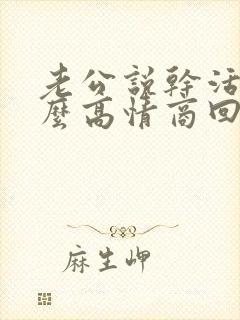 老公説幹活
麼高情商回
麻生岬